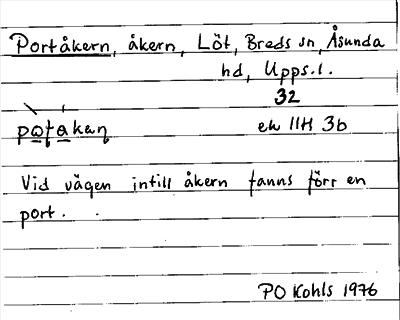 Portåkern, åkern, Löt, Breds sn, Åsunda
hd, Upps.l.
32
potakan ek 11H 3b
Vid vägen intill åkern fanns förr en
port.
PO Kohls 1976